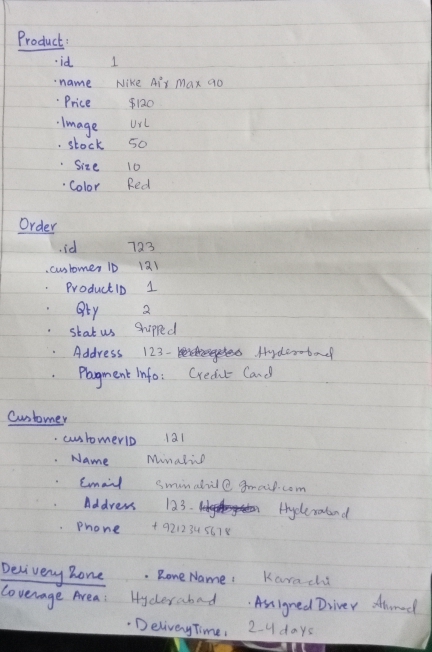 Product:
· id 1
· name Nike Air Max 90
· Price $120
· Image Url
· stock 50
· Size 10
· Color Red
Order
· id 723
· customer ID 121
· Product ID 1
· Qty 2
· status Shipped
· Address 123- Hyderabad
· Payment Info: Credit Card
Customer
· customerID 121
· Name
· Email @gmail.com
· Address 123- Hyderabad
· Phone +9212345678
Delivery Zone · Zone Name: Karachi
Coverage Area: Hyderabad · Assigned Driver Ahmad
· Delivery Time: 2-4 days